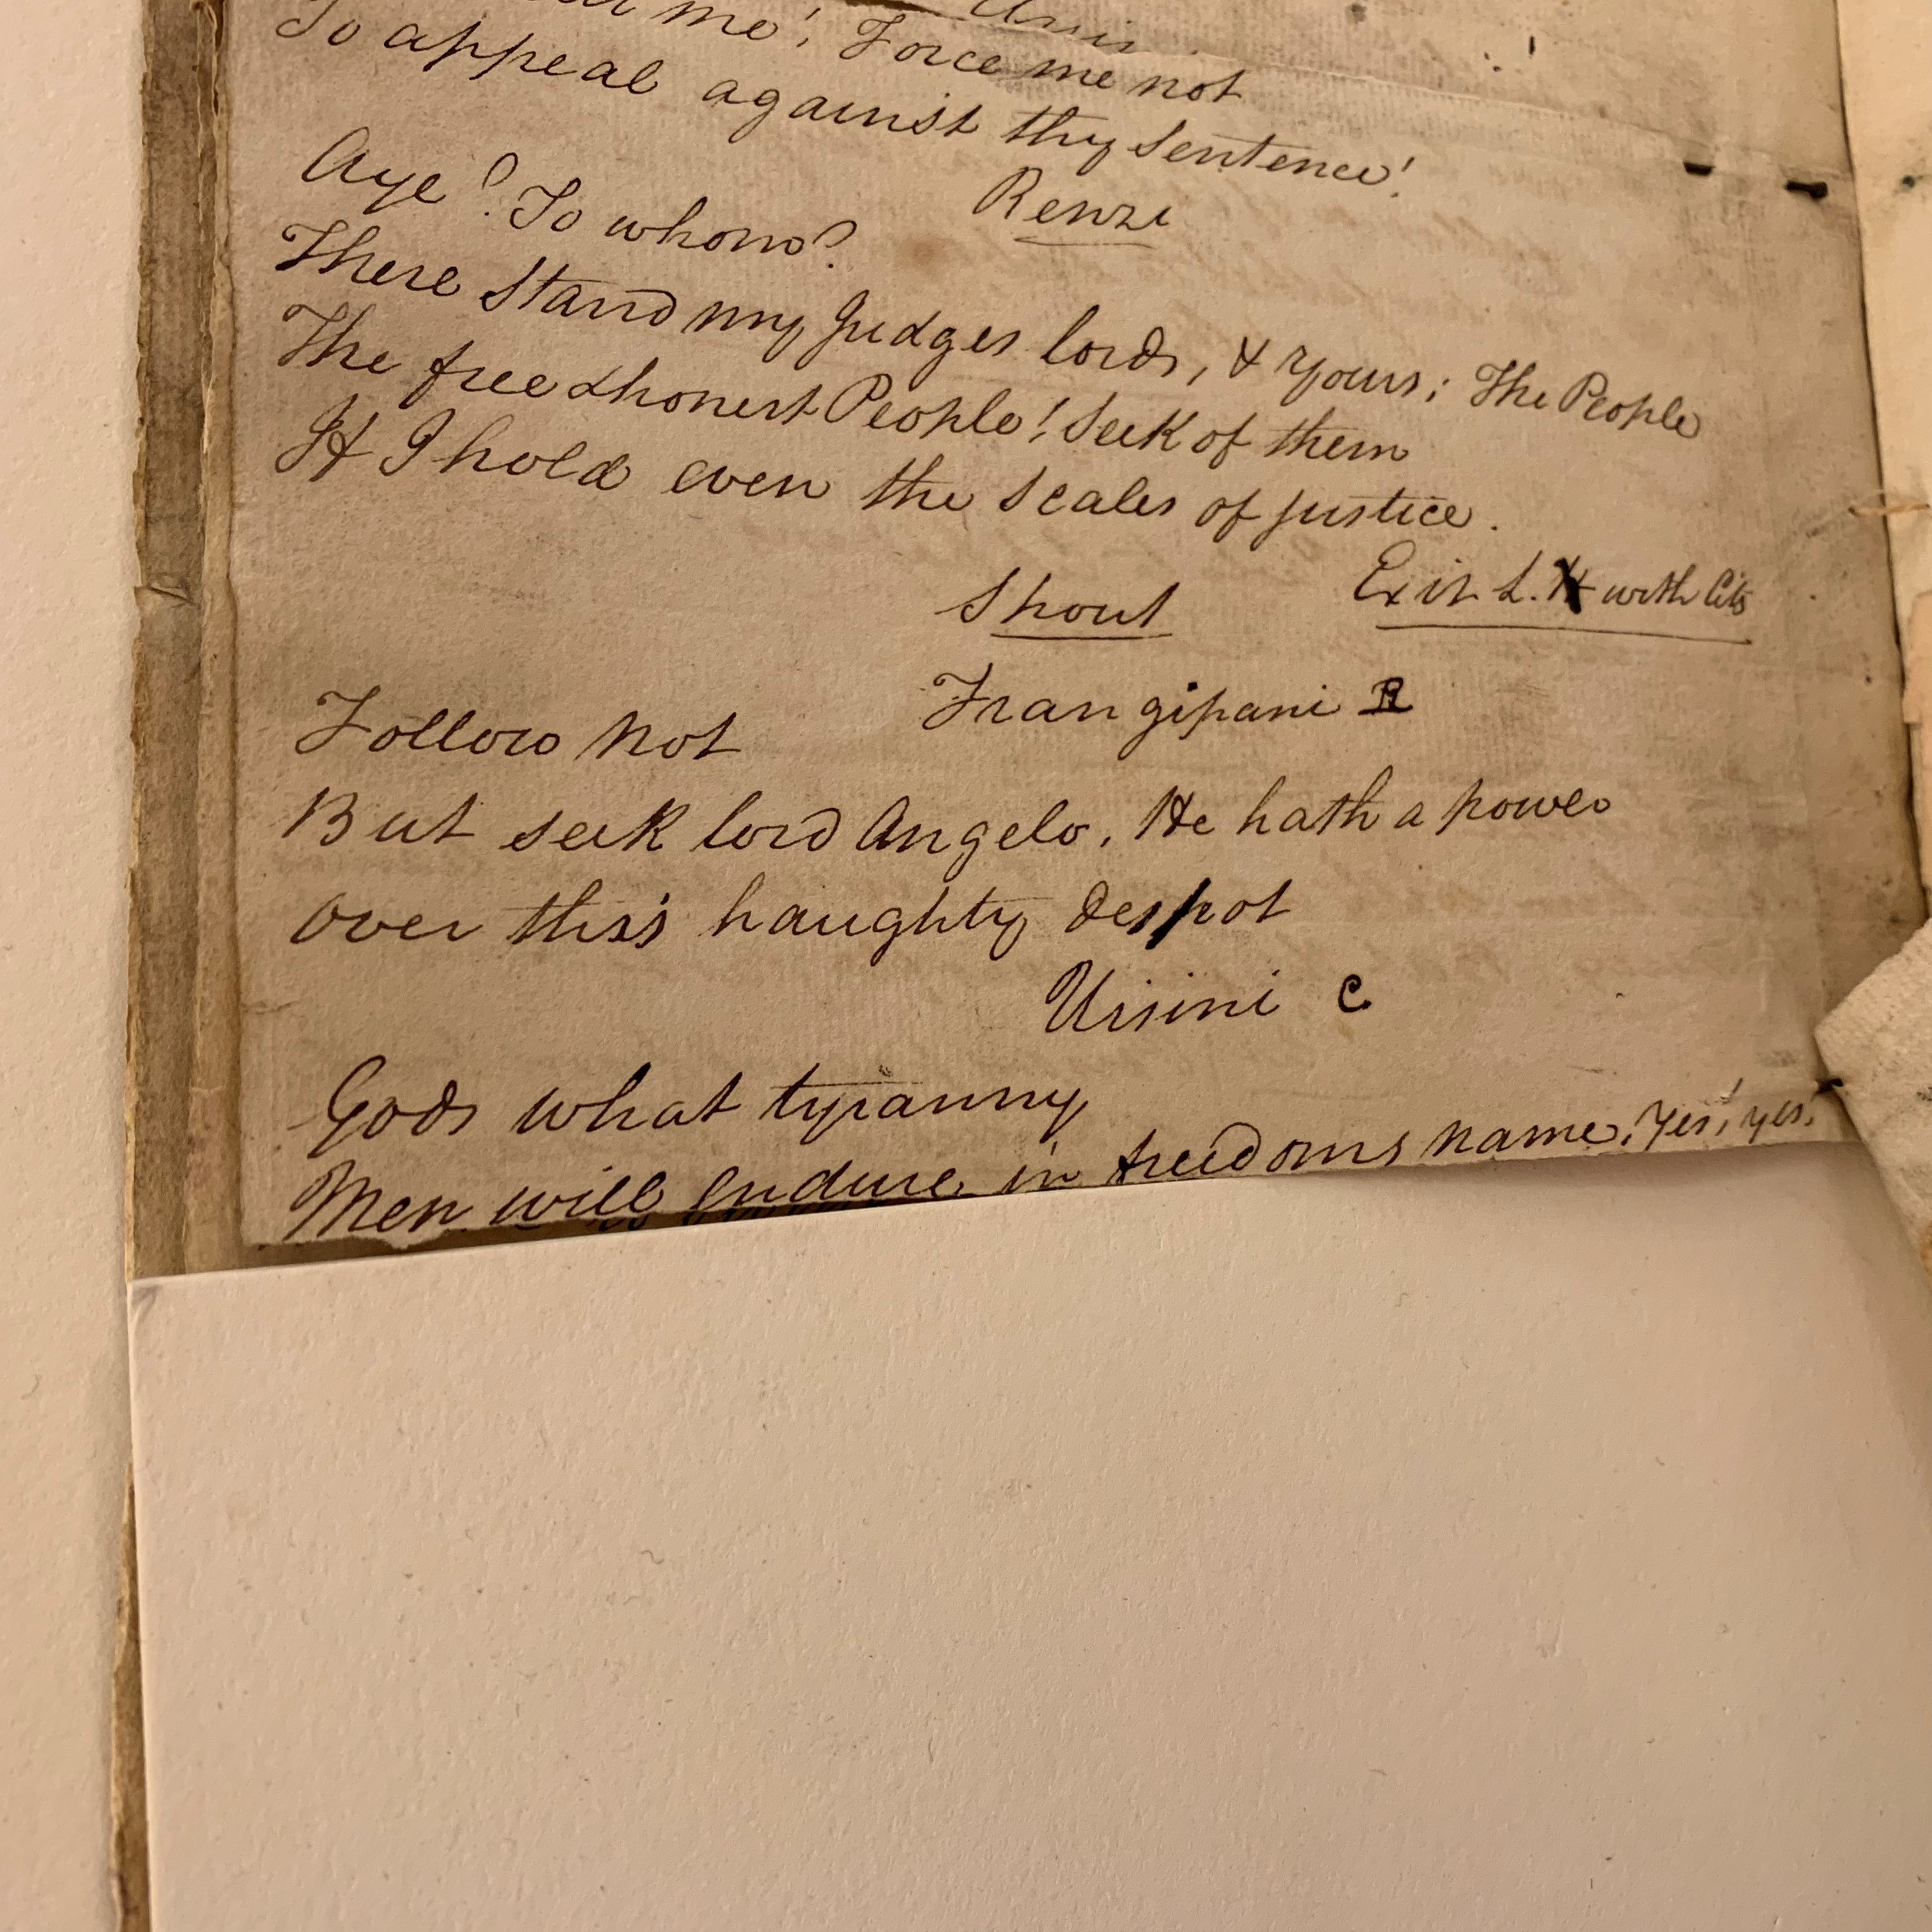 me! Force me not
To appeal against thy sentence!
Renzi
Aye? To whom?
There stand my Judges lords, & yours; The People
The free & honest People! Seek of them
If I hold even the scales of justice.
Shout
Exit L. with Cits
Frangipani R
Follow not
But seek lord Angelo, He hath a power
Over this haughty despot
Ursini C
Gods what tyranny
Men will endure in freedoms name. Yes! yes!